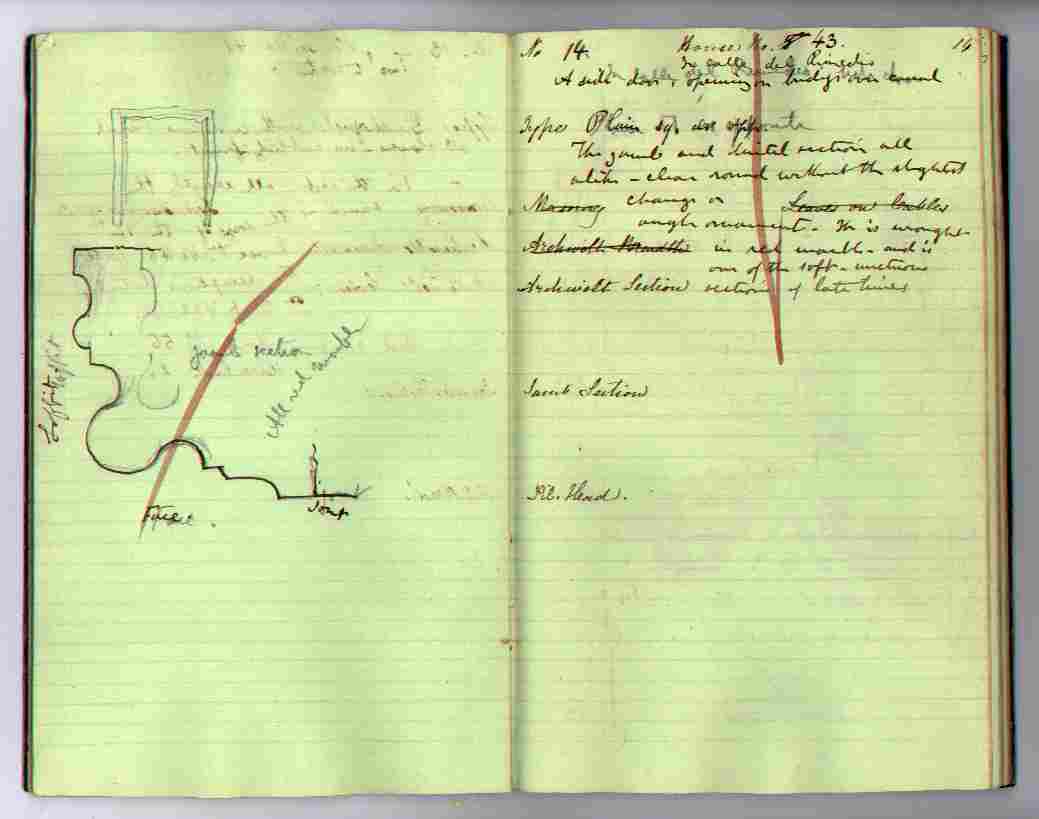 Soffit
Jamb section
All red marble
Face
No 14. House No. 43. 14
In calle del Rimedio
A side door, opening on bridge over canal
Type Plain sq. opposite
The jambs and lintel section all
alike - clear round without the slightest
Masonry change or Leaves on Cables
ornament. It is wrought
Archivolt Breadth in red marble - and is
one of the soft - unctuous
Archivolt Section sections of late times
Jamb Section
Pil. Head.